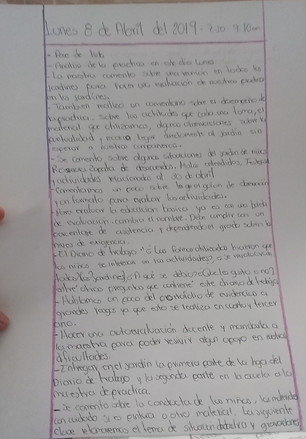 Lunes 8 de Abril del 2019 - 7:30 - 9:10am
- Pase de lista
- Análisis de la práctica en este día lunes
- La maestra comento sobre una reunión en todos los
jardines para hacer una evaluación de nuestras practicas
en los jardines.
- También realizo un comentario sobre el desempeño de
la práctica, sobre las actitudes que cada una toma, el
material que utilizamos, algunas observaciones sobre la
puntualidad, y no llegar directamente al jardín sin
esperar a nuestras compañeras.
- Se comento sobre algunas situaciones del jardín de niños
Rosaura Zapata de descuerdos, Hubo
y actividades relacionadas al 30 de abril
- Comentamos un poco sobre la
y un formato para evaluar las actividades.
- Para evaluar la educación básica ya es con una boleta
de evaluación, cambio el nombre. Debe cumplir con un
porcentaje de asistencia y dependiendo el grado sobre los
niveles de exigencia.
- El Diario de trabajo ¿La forma utilizada hicieron que
los niños se interesen en las actividades? ¿Se involucraron
todos los ¿A qué se debio? ¿Que les gusto o no?
entre otras preguntas que contiene este diario de trabajo
- Hablamos un poco del portafolio de evidencias a
grandes rasgos ya que esto se realiza en cuarto y tercer
año.
- Hacer una autoevaluación docente y mandarla a
la maestra para poder recibir algun apoyo en nuestras
dificultades.
- Entregar en el jardín la primera parte de la hoja del
Diario de trabajo y la segunda parte en la escuela a la
maestra de práctica.
- Se comento sobre la conducta de los niños, la
con cuidado si es pintura u otro material. La siguiente
clase retomaremos el tema de situación didáctica y